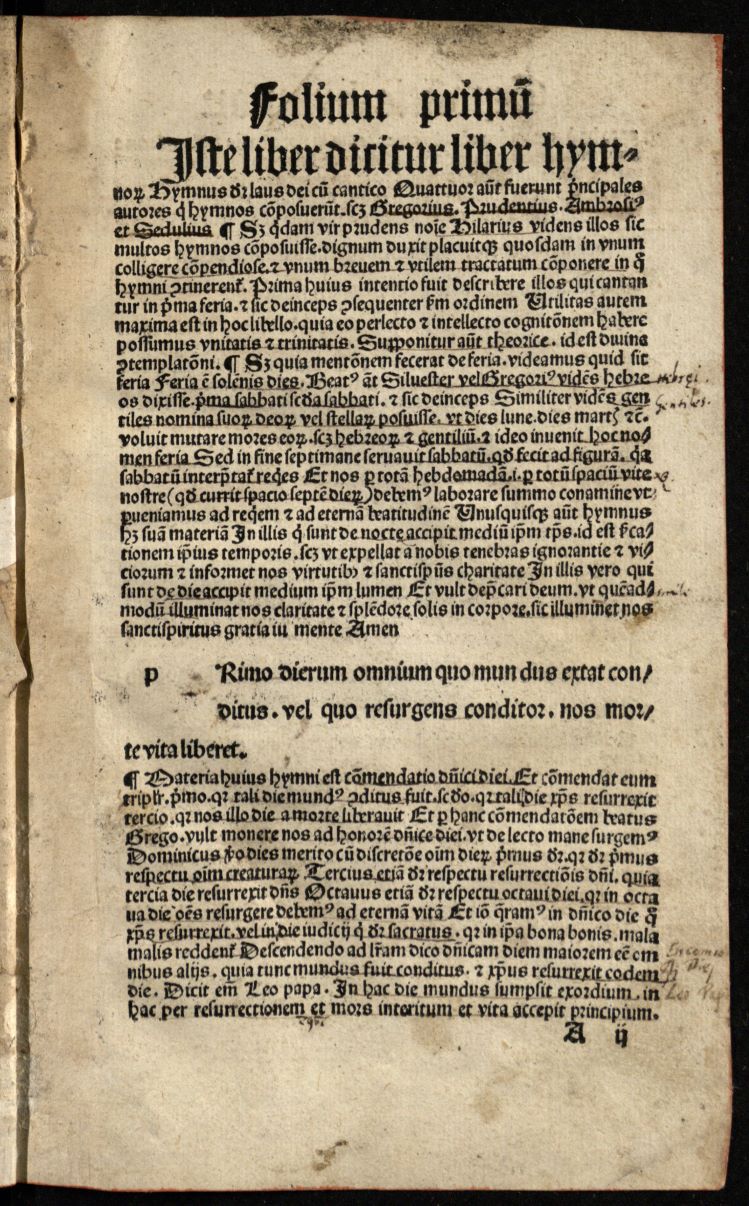 Folium primū
Iste liber dicitur liber hym⸗
noꝝ Hymnus dr̄ laus dei cū cantico Quattuor aūt fuerunt p̄ncipales
autores q̄ hymnos cōposuerūt.scꝫ Gregorius. Prudentius. Ambrosiꝰ
et Sedulius ¶ Sꝫ q̄dam vir prudens noīe Hilarius videns illos sic
multos hymnos cōposuisse.dignum duxit placuitqꝫ quosdam in vnum
colligere cōpendiose.⁊ vnum breuem ⁊ vtilem tractatum cōponere in q̄
hymni ꝯtinerent᷑. Prima huius intentio fuit describere illos qui cantan
tur in p̄ma feria.⁊ sic deinceps ꝯsequenter ẜm ordinem Utilitas autem
maxima est in hoc libello.quia eo perlecto ⁊ intellecto cognitōnem habere
possumus vnitatis ⁊ trinitatis. Supponitur aūt theorice. id est diuine
ꝯtemplatōni. ¶ Sꝫ quia mentōnem fecerat de feria.videamus quid sit
feria Feria ē solēnis dies. Beatꝰ āt Siluester vel Gregoriꝰ vidēs hebre
os dixisse.p̄ma sabbati sc̄da sabbati. ⁊ sic deinceps Similiter vidēs gen
tiles nomina suoꝝ deoꝝ vel stellaꝝ posuisse. vt dies lune.dies martꝭ ⁊c̄.
voluit mutare mores eoꝝ.scꝫ hebreoꝝ ⁊ gentiliū.⁊ ideo inuenit hoc no⸗
men feria Sed in fine septimane seruauit sabbatū.qd̄ fecit ad figurā. q̄a
sabbatū interp̄tat᷑ reqes Et nos ꝑ totā hebdomadā.i.ꝑ totū spaciū vite
nostre (qd̄ currit spacio septē dieꝝ) debemꝰ laborare summo conamine vt
ꝑueniamus ad reqem ⁊ ad eternā beatitudinē Unusquisqꝫ aūt hymnus
hꝫ suā materiā In illis q̄ sunt de nocte accipit mediū ip̄m tp̄s.id est ẜca⸗
tionem ip̄ius temporis.scꝫ vt expellat a nobis tenebras ignorantie ⁊ vi⸗
ciorum ⁊ informet nos virtutibꝫ ⁊ sanctisp̄ūs charitate In illis vero qui
sunt de die accipit medium ip̄m lumen Et vult dep̄cari deum.vt quēad⸗
modū illuminat nos claritate ⁊ splēdore solis in corpore.sic illuminet nos
sanctispiritus gratia iu mente Amen
p Rimo dierum omnium quo mun dus extat con⸗
ditus. vel quo resurgens conditor. nos mor⸗
te vita liberet.
¶ Materia huius hymni est cōmendatio dn̄ici diei.Et cōmendat eum
triplr̄.p̄mo.qr tali die mundꝰ ꝯditus fuit.sc̄do.qr tali die xp̄s resurrexit
tercio.qr nos illo die a morte liberauit Et ꝑ hanc cōmendatōem beatus
Grego.vult monere nos ad honorē dn̄ice diei.vt de lecto mane surgemꝰ
Dominicus ꝟo dies merito cū discretōe oīm dieꝝ p̄mus dr̄.qr dr̄ p̄mus
respectu oīm creaturaꝝ Tercius etiā dr̄ respectu resurrectiōis dn̄i. quia
tercia die resurrexit dn̄s Octauus etiā dr̄ respectu octaui diei.qr in octa
ua die oēs resurgere debemꝰ ad eternā vitā Et iō q̄ramꝰ in dn̄ico die q̄
xp̄s resurrexit.vel in die iudicij q̄ dr̄ sacratus. qr in ip̄a bona bonis.mala
malis reddent᷑ Descendendo ad lr̄am dico dn̄icam diem maiorem eē om
nibus alijs. quia tunc mundus fuit conditus. ⁊ xp̄us resurrexit eodem
die. Dicit em̄ Leo papa. In hac die mundus sumpsit exordium. in
hac per resurrectionem et mors interitum et vita accepit principium.
A ij